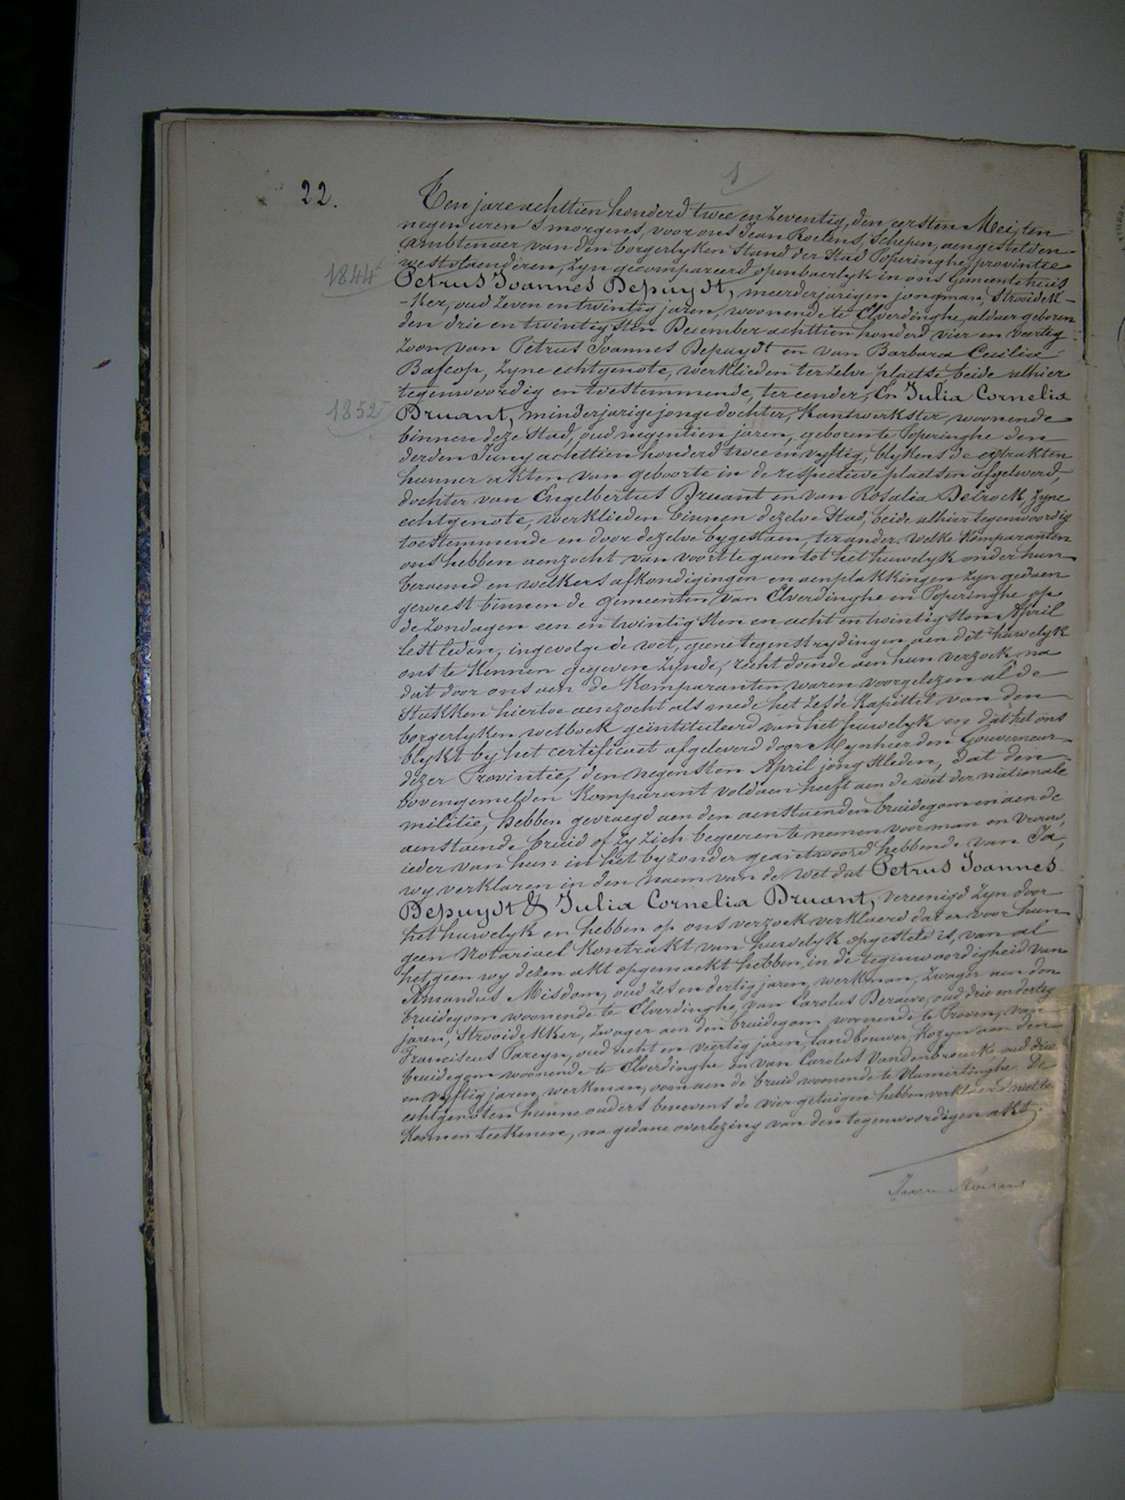 1
22.
Ten jare achttien honderd twee en zeventig, den eersten Mei, ten
negen uren s morgens, voor ons Jean Roelens, Schepen, aengestelden
Ambtenaer van den borgerlyken Stand der Stad Poperinghe, provintie
westvlaenderen, Zyn gecompareerd openbaerlyk in ons Gemeentehuis
1844
Petrus Joannes Depuydt, meerderjarigen jongman, Strooidek-
-ker, oud Zeven en twintig jaren, woonende te Elverdinghe, aldaer geboren
den drie en twintigsten December achttien honderd vier en veertig
Zoon van Petrus Joannes Depuydt en van Barbara Cecilia
Bafcop, Zyne echtgenote, werklieden ter zelve plaetse beide alhier
tegenwoordig en toestemmende, ter eender, En Julia Cornelia
1852
Druant, minderjarige jonge dochter, Kantwerkster, woonende
binnen deze Stad, oud negentien jaren, geboren te Poperinghe den
derden Juny achttien honderd twee en vyftig, blykens de extrakten
hunner akten van geboorte in de respectieve plaetsen afgeleverd,
dochter van Engelbertus Druant en van Rosalia Detrock, Zyne
echtgenote, werklieden binnen dezelve Stad, beide alhier tegenwoordig
toestemmende en door dezelve bygestaen, ter ander, welke Komparanten
ons hebben aenzocht van voort te gaen tot het huwelyk onder hun
beraemd en welkers afkondigingen en aenplakkingen zyn gedaen
geweest binnen de gemeenten van Elverdinghe en Poperinghe op
de Zondagen een en twintigsten en acht en twintigsten April
lestleden, ingevolge de wet, geene tegenstrydingen aen dit huwelyk
ons te Kennen gegeven Zynde, recht doende aen hun verzoek, na
dat door ons aen de Komparanten waren voorgelezen al de
Stukken hiertoe aenzocht als mede het Zesde Kapittel van den
borgerlyken wetboek geïntituleerd van het huwelyk en dat het ons
blykt by het certificaet afgeleverd door Mynheer den Gouverneur
dezer Provintie, den negensten April jongstleden, dat den
bovengemelden Komparant voldaen heeft aen de wet der nationale
militie, hebben gevraegd aen den aenstaenden bruidegom en aen de
aenstaende bruid of Zy Zich begeeren te nemen voor man en vrouw,
ieder van hun in het byzonder geantwoord hebbende van Ja,
wy verklaren in den naem van de wet dat Petrus Joannes
Depuydt & Julia Cornelia Druant, vereenigd Zyn door
het huwelyk en hebben op ons verzoek verklaerd dat er voor hun
geen Notariael Kontrakt van huwelyk opgesteld is, van al
het geen wy dezen akt opgemaekt hebben, in de tegenwoordigheid van
Amandus Misdom, oud Zes en dertig jaren, werkman, Zwager aen den
bruidegom woonende te Elverdinghe, van Carolus Deraeve, oud drie en dertig
jaren, Strooidekker, Zwager aen den bruidegom woonende te Proven, van
Franciscus Pareyn, oud acht en veertig jaren, landbouwer, Kozyn aen den
bruidegom woonende te Elverdinghe En van Carolus Vandenbroucke oud drie
en vyftig jaren, werkman, oom aen de bruid woonende te Vlamertinghe. De
echtgenoten hunne ouders benevens de vier getuigen hebben verklaerd niet te
Kennen teekenen, na gedane overlezing van den tegenwoordigen akt.
Jean Roelens